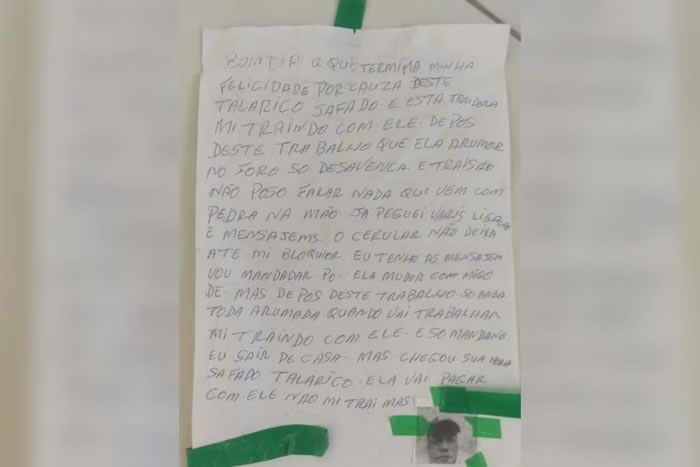 BOM DIA AQUI TERMIMA MINHA
FELICIDADE POR CAUZA DESTE
TALARICO SAFADO E ESTA TRAIDORA
MI TRAINDO COM ELE DEPOS
DESTE TRABALHO QUE ELA ARUMOR
NO FORO SO DESAVENCA E TRAISÃO
NÃO POSO FALAR NADA QUI VEM COM
PEDRA NA MÃO JA PEGUEI VARIS
E MENSAJEMS O CERULAR NÃO DEIXA
ATE MI BLOQUIOR EU TENHO AS MENSAJEM
VOU MANDADAR PO ELA MUDOR COM MIGO
DE MAS DEPOS DESTE TRABALHO SO ANDA
TODA ARUMADA QUANDO VAI TRABALHAR
MI TRAINDO COM ELE E SO MANDANO
EU SAIR DE CASA MAS CHEGOU SUA HORA
SAFADO TALARICO ELA VAI PAGAR
COM ELE NÃO MI TRAI MAS